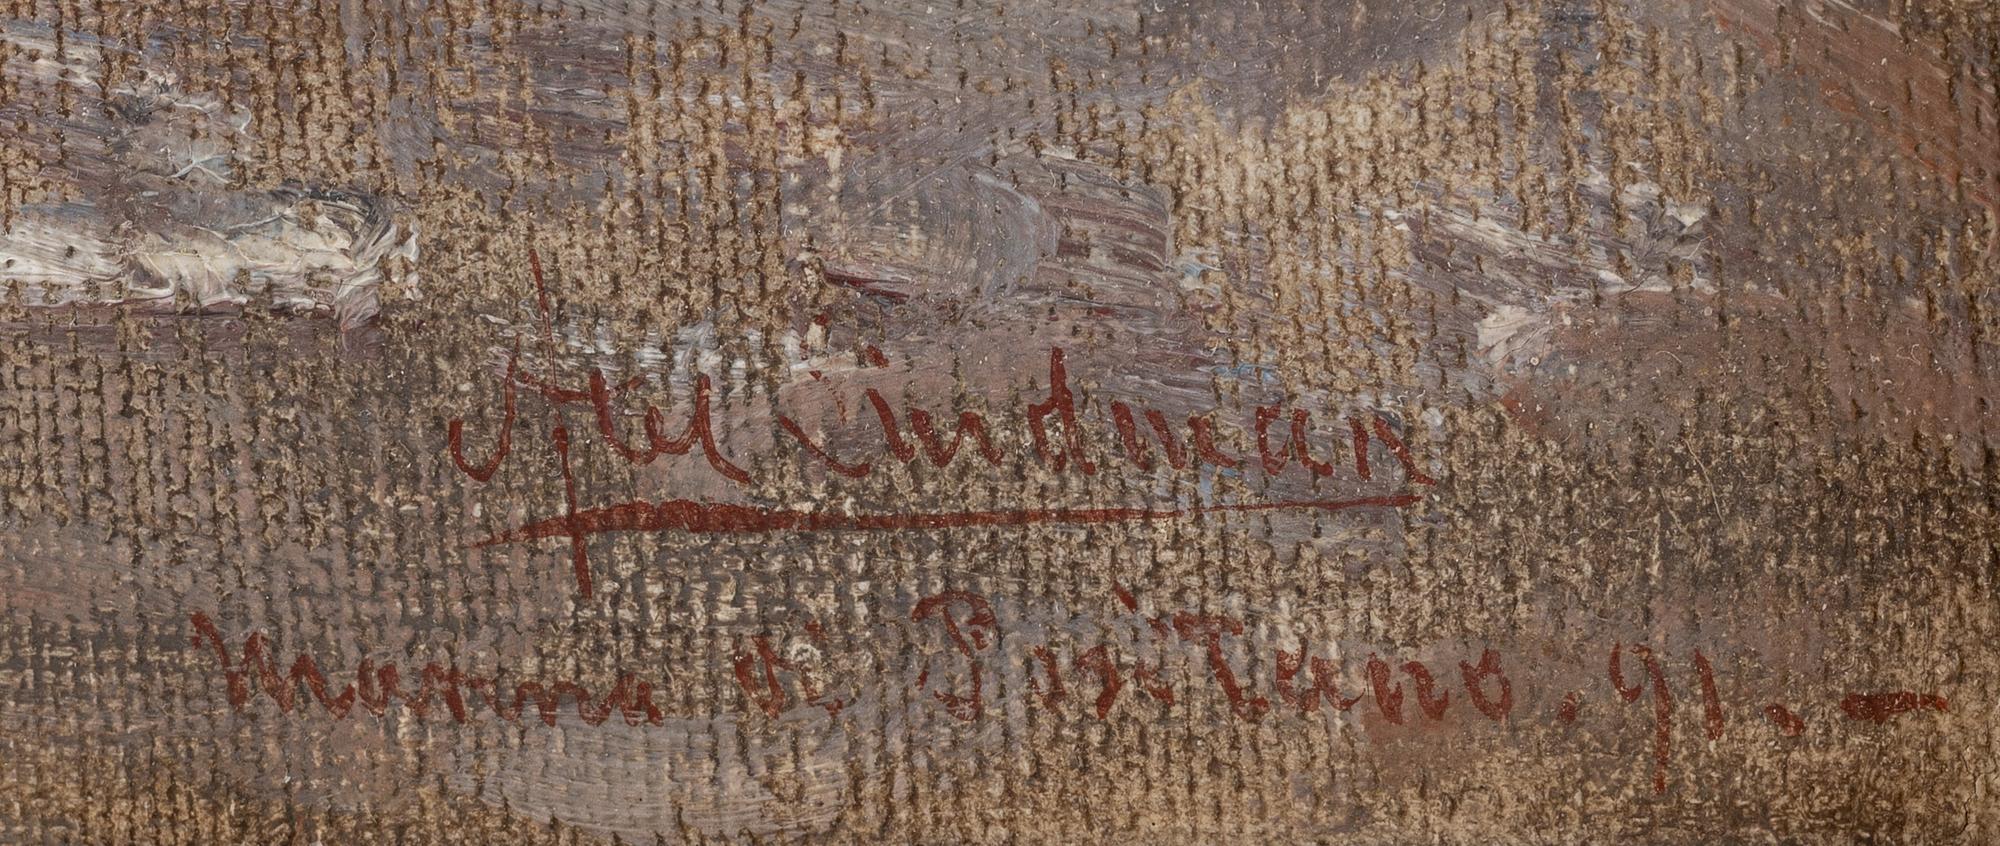 Axel Lindman
Marina di Positano. 91. –